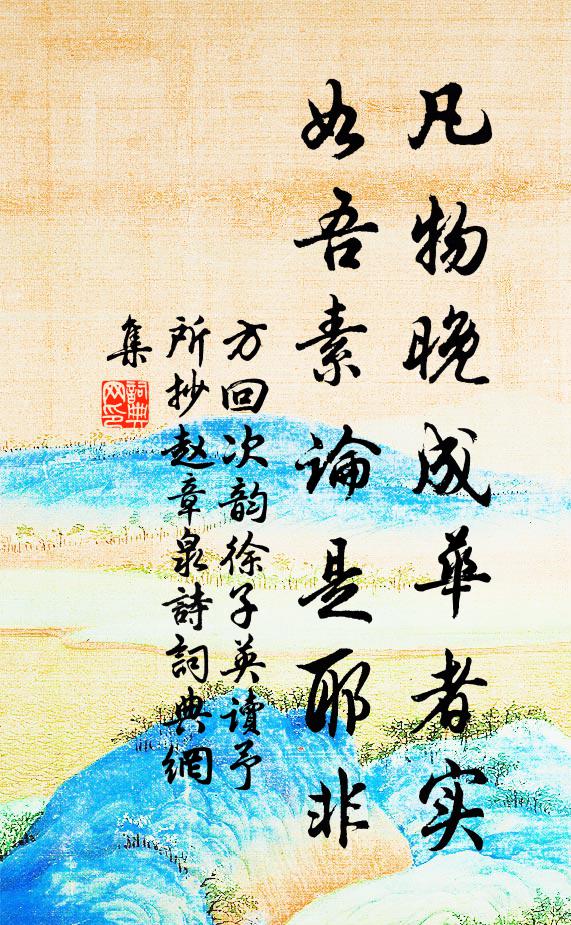 凡物晚成華者实
如吾素論是耶非
方回次韵徐子英讀予
所抄赵章泉詩詞典網
集
詞典
网印